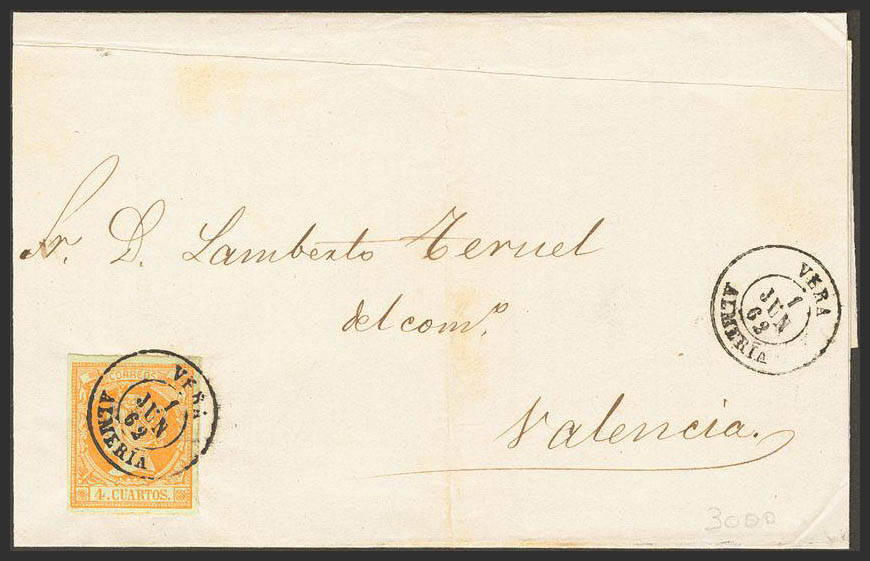 Sr. D. Lamberto Teruel
del comº.
VERA
1
JUN
62
ALMERÍA
CORREOS
VERA
1
JUN
62
ALMERÍA
4 CUARTOS.
Valencia.
3000